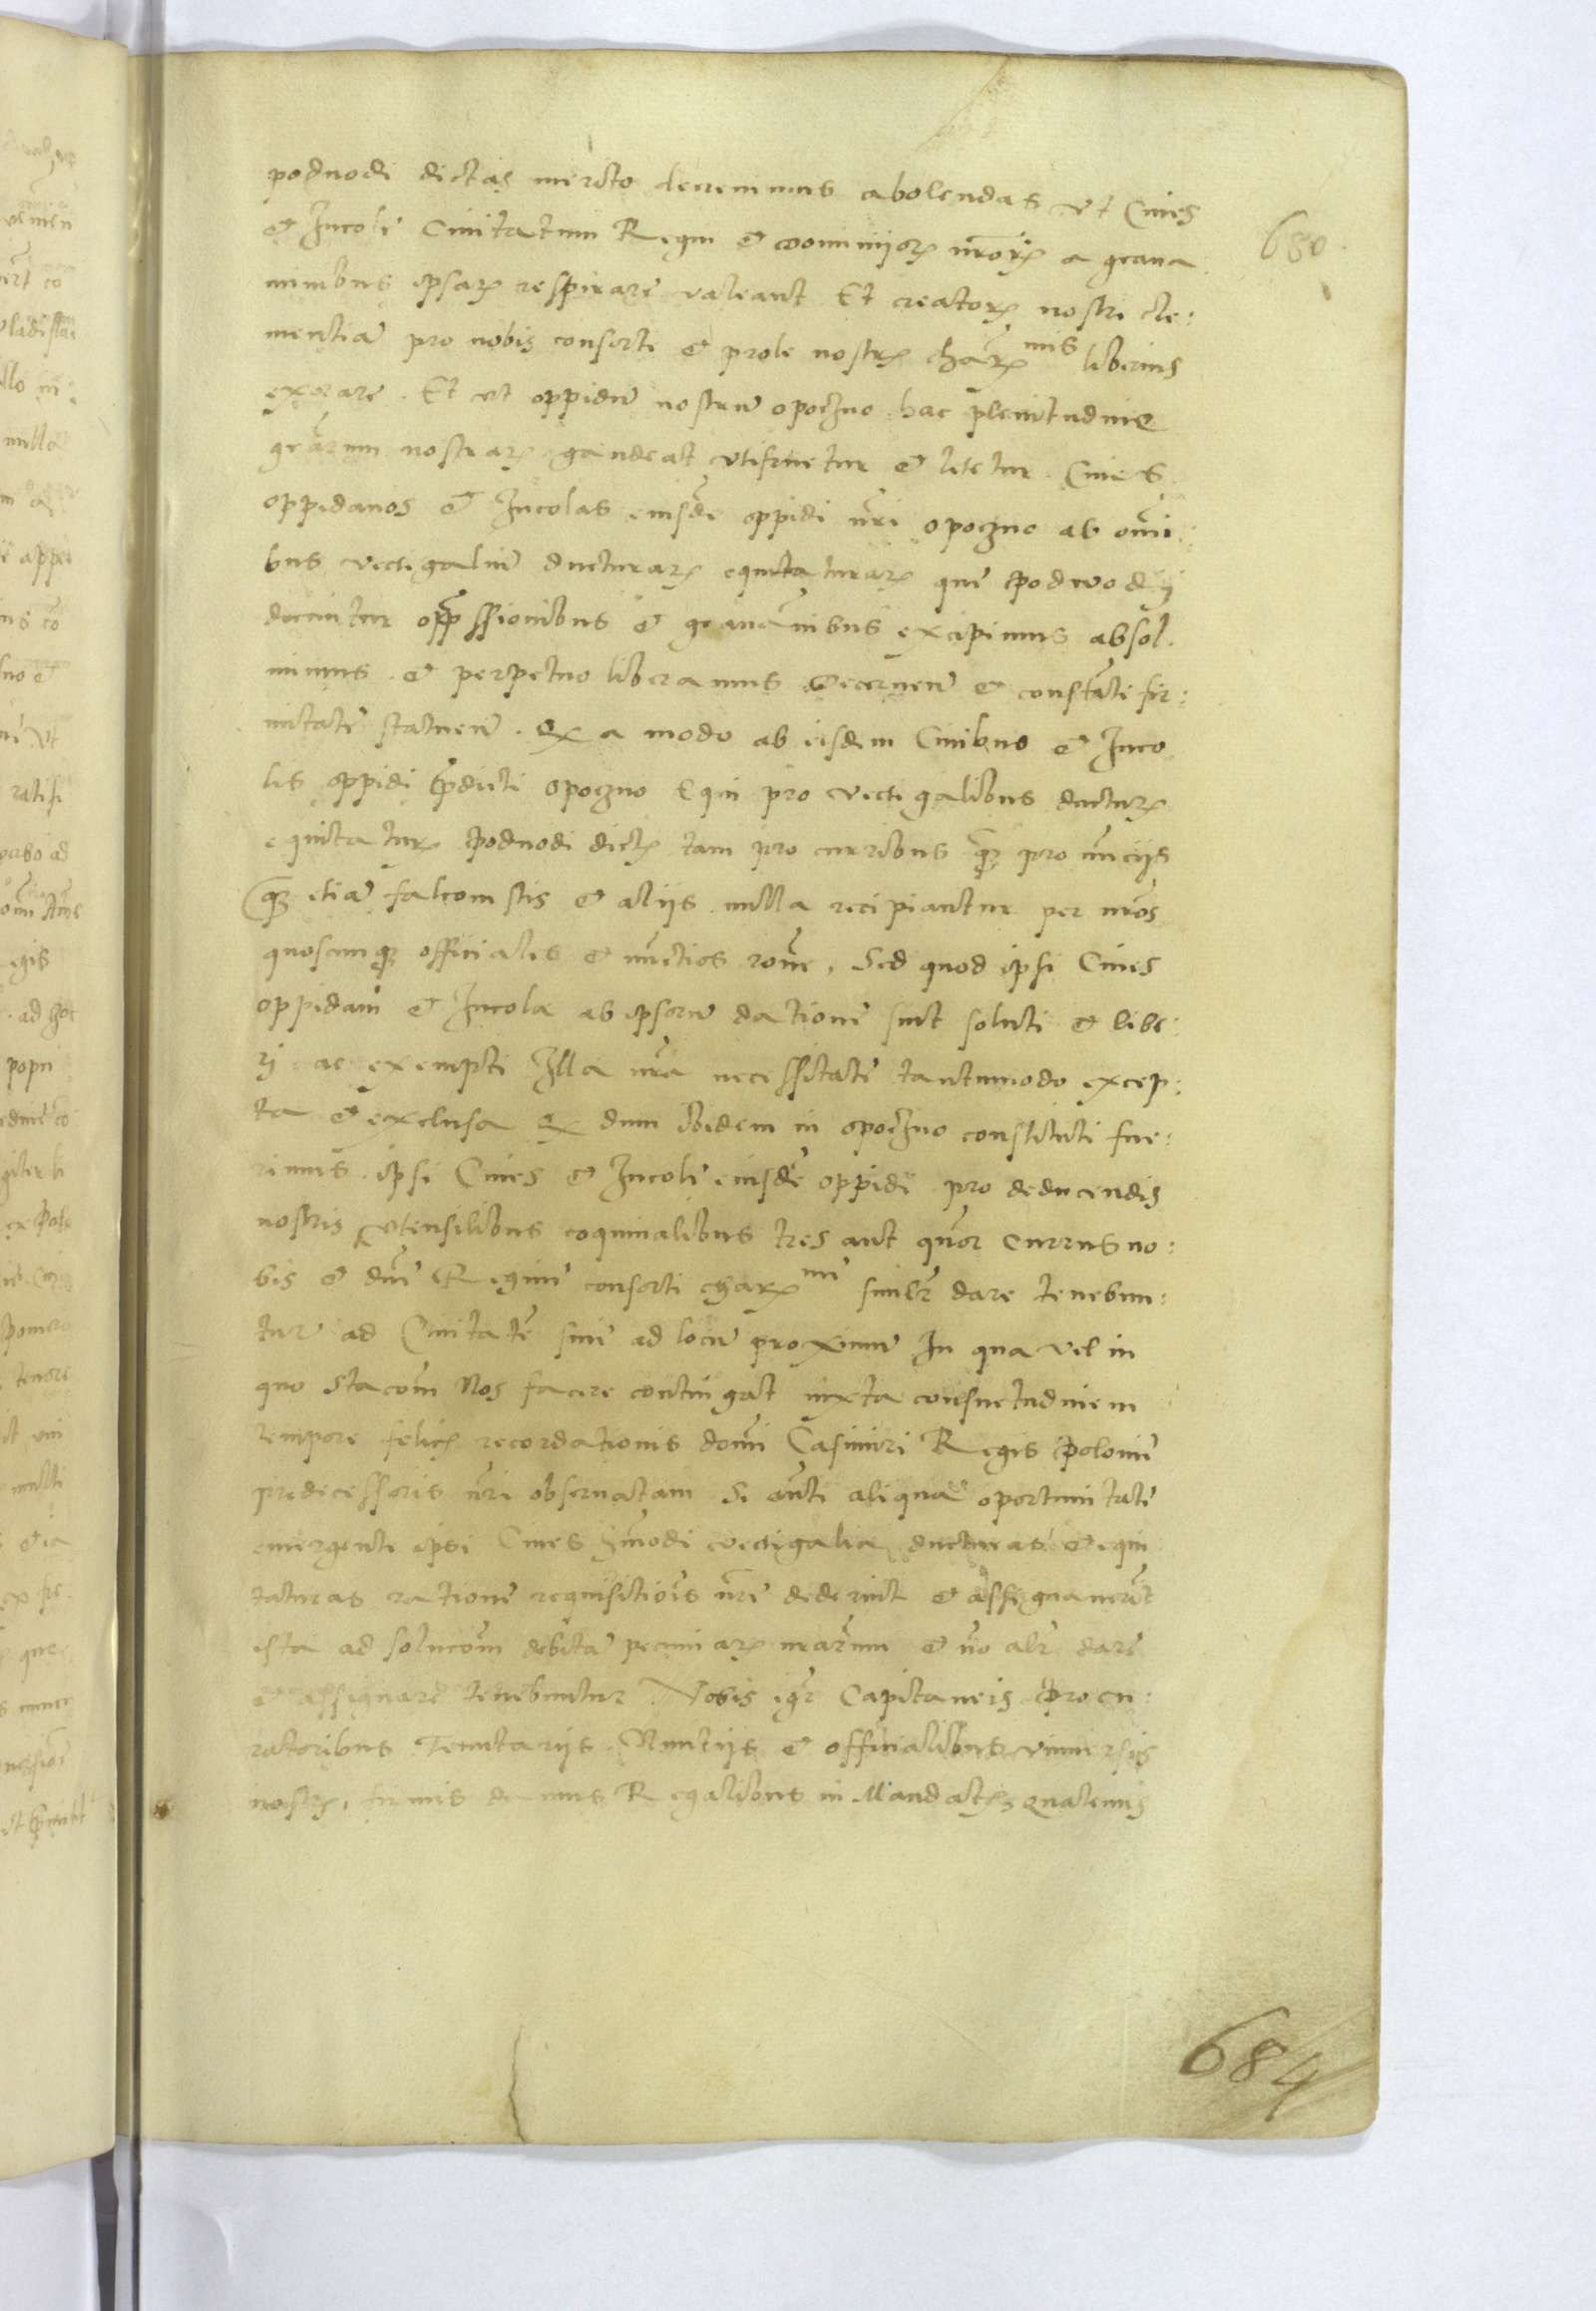 poduodi dictas merito decreuimus abolendas vt Ciues
et Incole Ciuitatum Regni et dominiorꝫ nrorꝫ a graua
minibus ipsarꝫ respirare valeant Et creatorꝫ nostri cle:
mentiā pro nobis consorte et prole nostrꝫ charꝫmis liberius
exorare. Et vt oppidū nostrum opoczno hac plenitudine
gr̄arum nostrarꝫ gaudeat vtifruetur et letetur. Ciues
oppidanos et Incolas eiusdē oppidi nri opoczno ab omī:
bus vectigaliū ducturarꝫ equitaturarꝫ que podwodij
dicuntur opp̄ssionibus et grauaīnibus excipimus absol.
uimus. et perpetuo liberamus decernen̄ et constāti fir:
mitate statuen̄. Qꝫ a modo ab eisdem Ciuibus et Inco
lis oppidi p̄dicti opoczno Equi pro vectigalibus ducturꝫ
equitaturꝫ podwodi dictꝫ tam pro curribus qꝫ pro nunciis
qꝫ etiā falconistis et aliis nulla recipiantur per nros
quoscunqꝫ officiales et nuctios rone, Sed quod ipsi Ciues
oppidani et Incola ab ipsorū datione sint soluti et libe:
rj ac exempti Illa nrā necessitate tantumodo excep:
ta et exclusa Qꝫ dum ibidem in opoczno constituti fue:
rimus. ipsi Ciues et Incole eiusdē oppidi pro deducendis
nostris vtensilibus coquinalibus tres aut quor currus no:
bis et dūe Regine consorti charꝫme simlr dare tenebun:
tur ad Ciuitatē siue ad locū proximū In qua vel in
quo Stacom̄ Nos facere contingat iuxta consuetudinem
tempore felicꝫ recordationis domī Casimiri Regis Polonie
predecessoris nri obseruatam Si aūt aliqua oportunitate
emergente ipsi Ciues hm̄odi vectigalia ducturas et equi
taturas ratione requisitiois nr̄e dederint et assignauerīt
ista ad solucom̄ debitā pecuniarꝫ nrarum et nō alr̄ dare
et assignare tenebuntur Vobis igr̄ Capitaneis Procu:
ratoribus Tenutariis Nuntiis et officialibus vniuersis
nostrꝫ, firmis damus Regalibus in Mandatꝫ quatenus
680
684